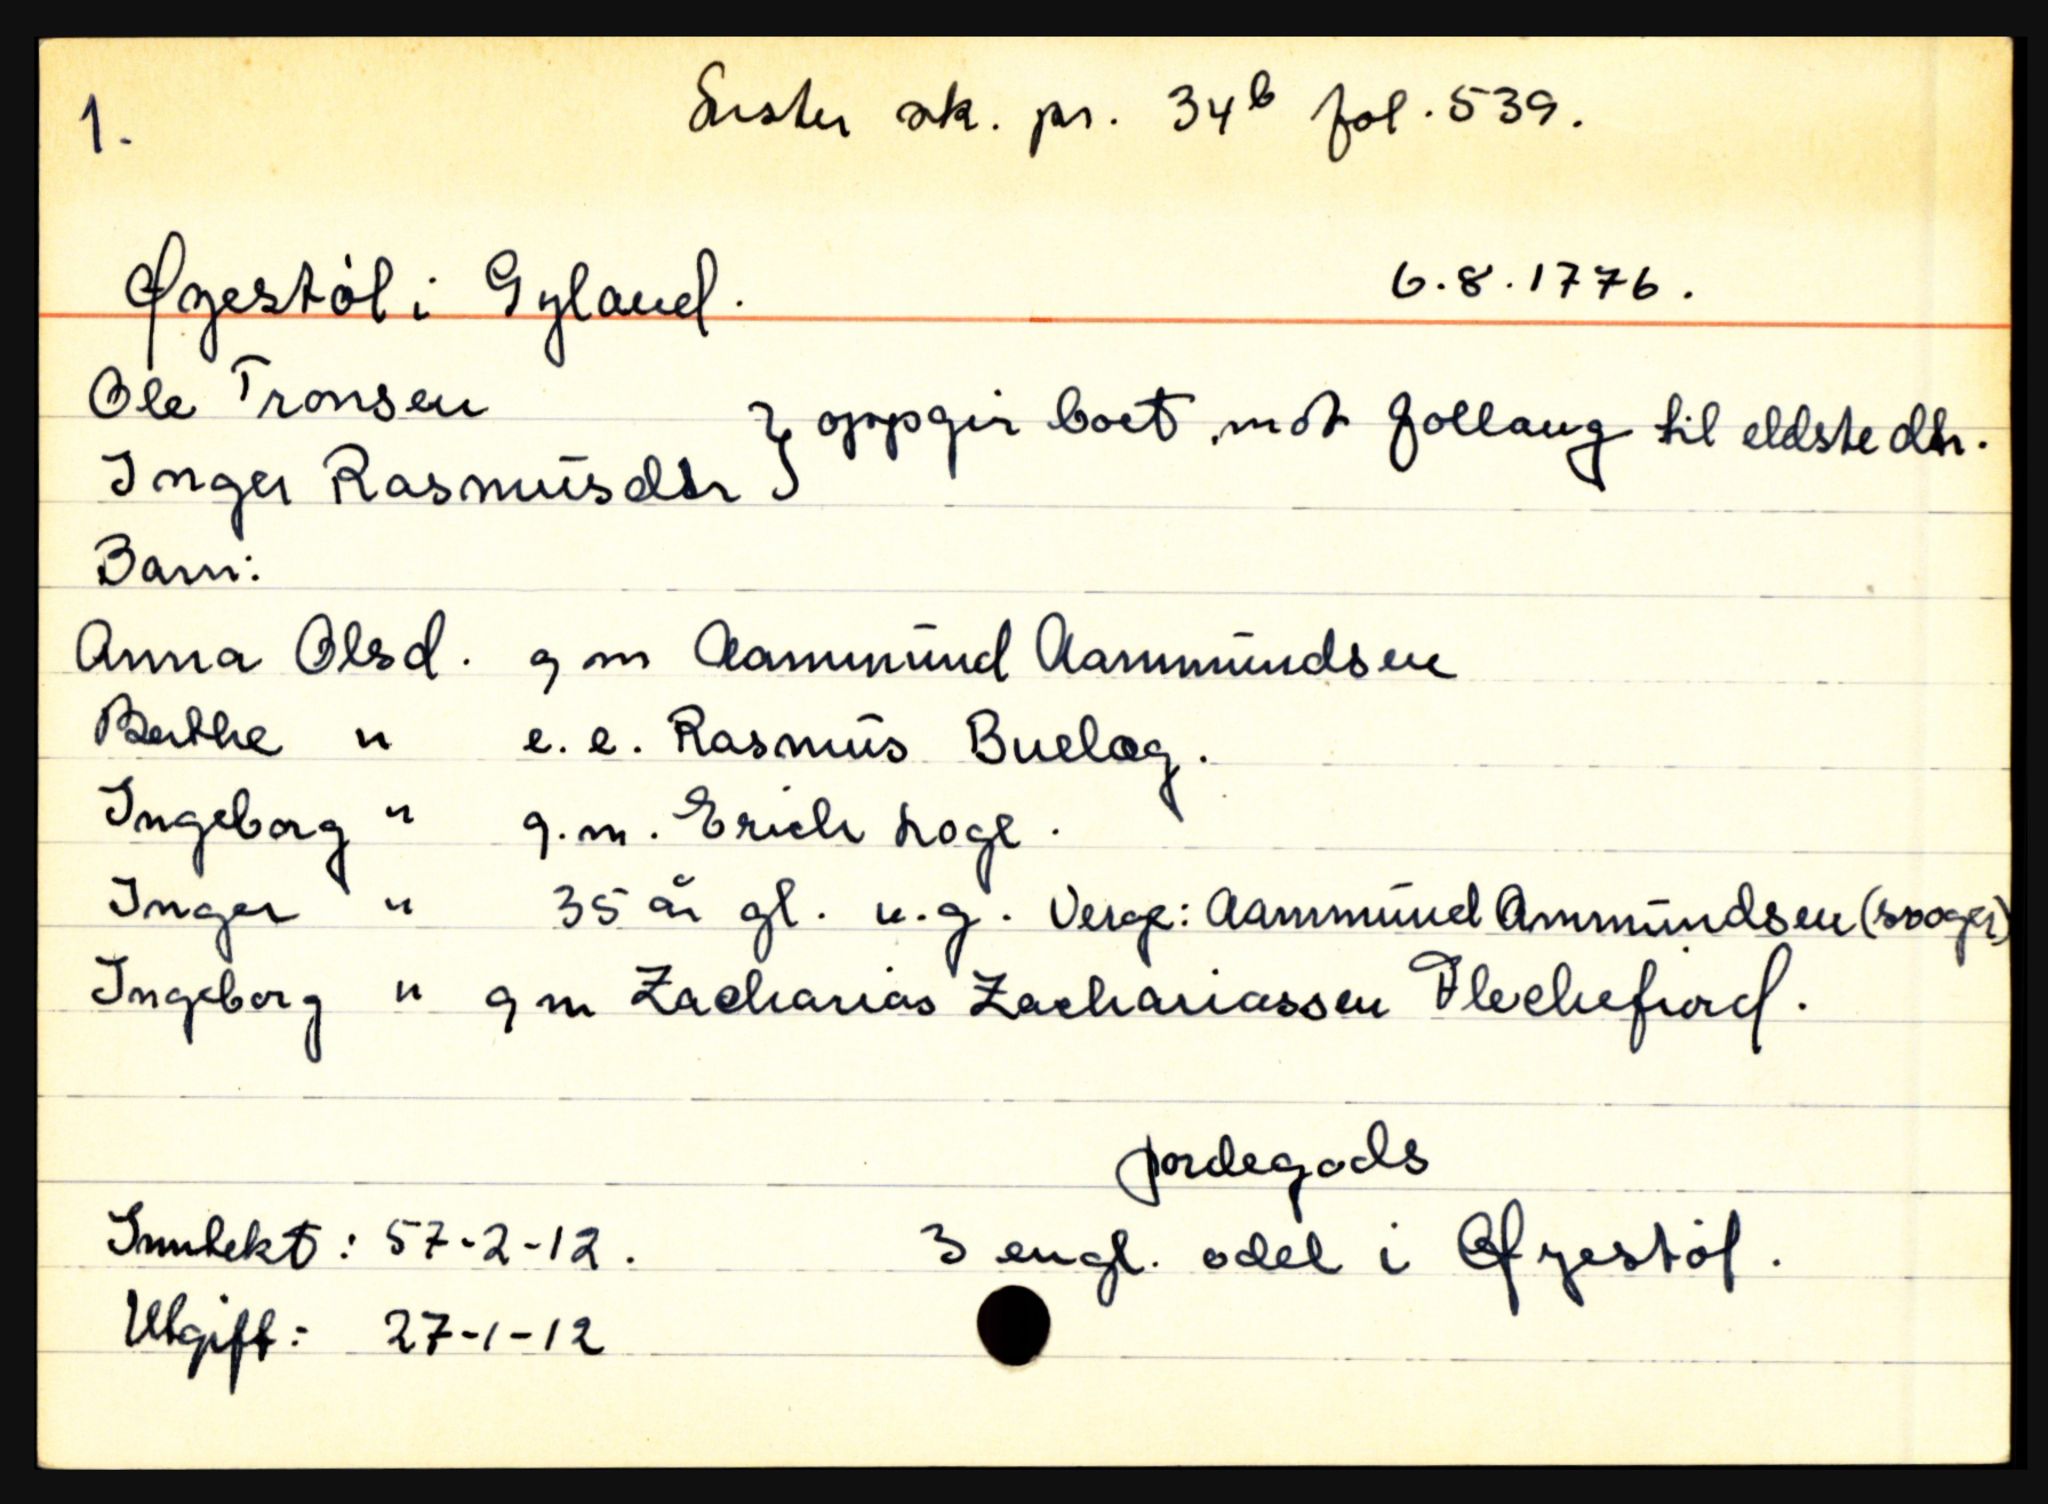 1.
Lister sk. pr. 34b fol. 539.
Øyestøl i Gyland. 6.8.1776.
Ole Tronsen
Inger Rasmusdtr } oppgir boet mot follaug til eldste dtr.
Barn:
Anna Olsd. g m Aammund Aammundsen
Berthe " e. e. Rasmus Buelæg.
Ingeborg " g. m. Erich Loge.
Inger " 35 år gl. u.g. Verge: Aammund Ammundsen (svoger)
Ingeborg " g m Zacharias Zachariassen Flechefiord.
Jordegods
Inntekt: 57-2-12. 3 engl. odel i Øyestøl.
Utgift: 27-1-12